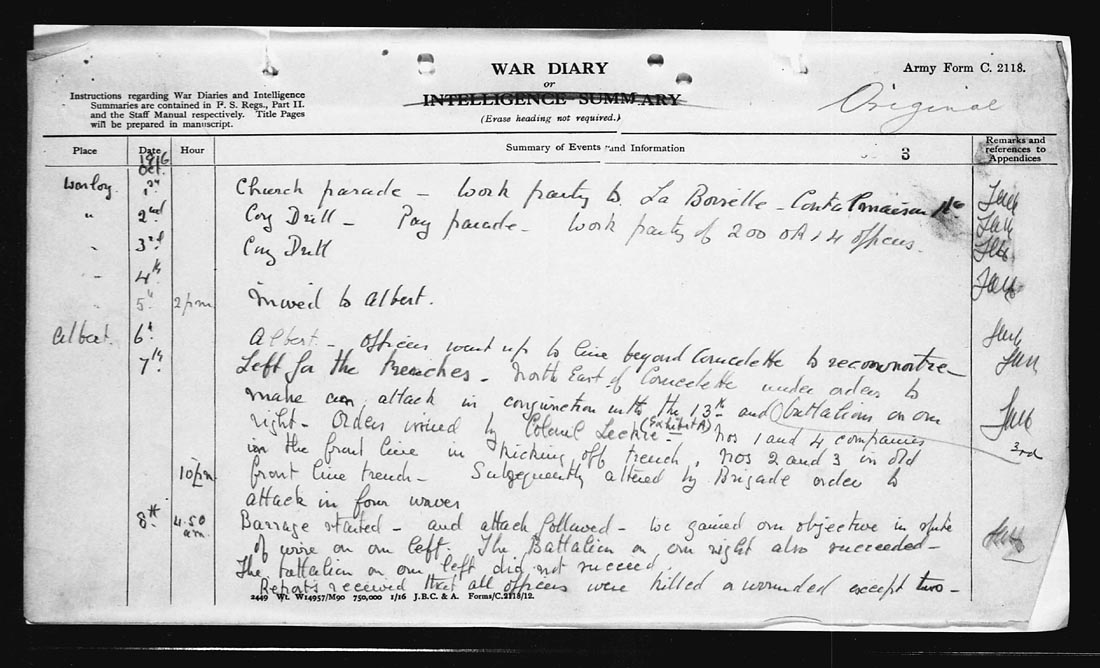 WAR DIARY
or
INTELLIGENCE SUMMARY
(Erase heading not required.)
Army Form C. 2118.
Original
Instructions regarding War Diaries and Intelligence
Summaries are contained in F. S. Regs., Part II.
and the Staff Manual respectively. Title Pages
will be prepared in manuscript.
Place Date Hour Summary of Events and Information Remarks and references to Appendices
1916
Oct.
3
Warloy 1st Church parade - Work party to La Boiselle - Contalmaison
" 2nd Coy Drill - Pay parade - Work party of 200 OR & 4 officers.
" 3rd Coy Drill
" 4th
" 5th 2 pm Moved to Albert.
Albert. 6th Albert. - Officers went up to line beyond Courcelette to reconnoitre -
7th Left for the trenches - North East of Courcelette under orders to
make an attack in conjunction with the 13th and battalions on our
3rd
right - Orders issued by Colonel Leckie - (Exhibit A) Nos 1 and 4 companies
in the front line in kicking off trench, Nos 2 and 3 in old
10 pm front line trench - Subsequently altered by Brigade order to
attack in four waves
8th 4.50 am. Barrage started - and attack followed - We gained our objective in spite
of wire on our left. The Battalion on our right also succeeded -
The battalion on our left did not succeed.
Reports received that all officers were killed or wounded except two -
2449 Wt. W14957/M90 750,000 1/16 J.B.C. & A. Forms/C.2118/12.